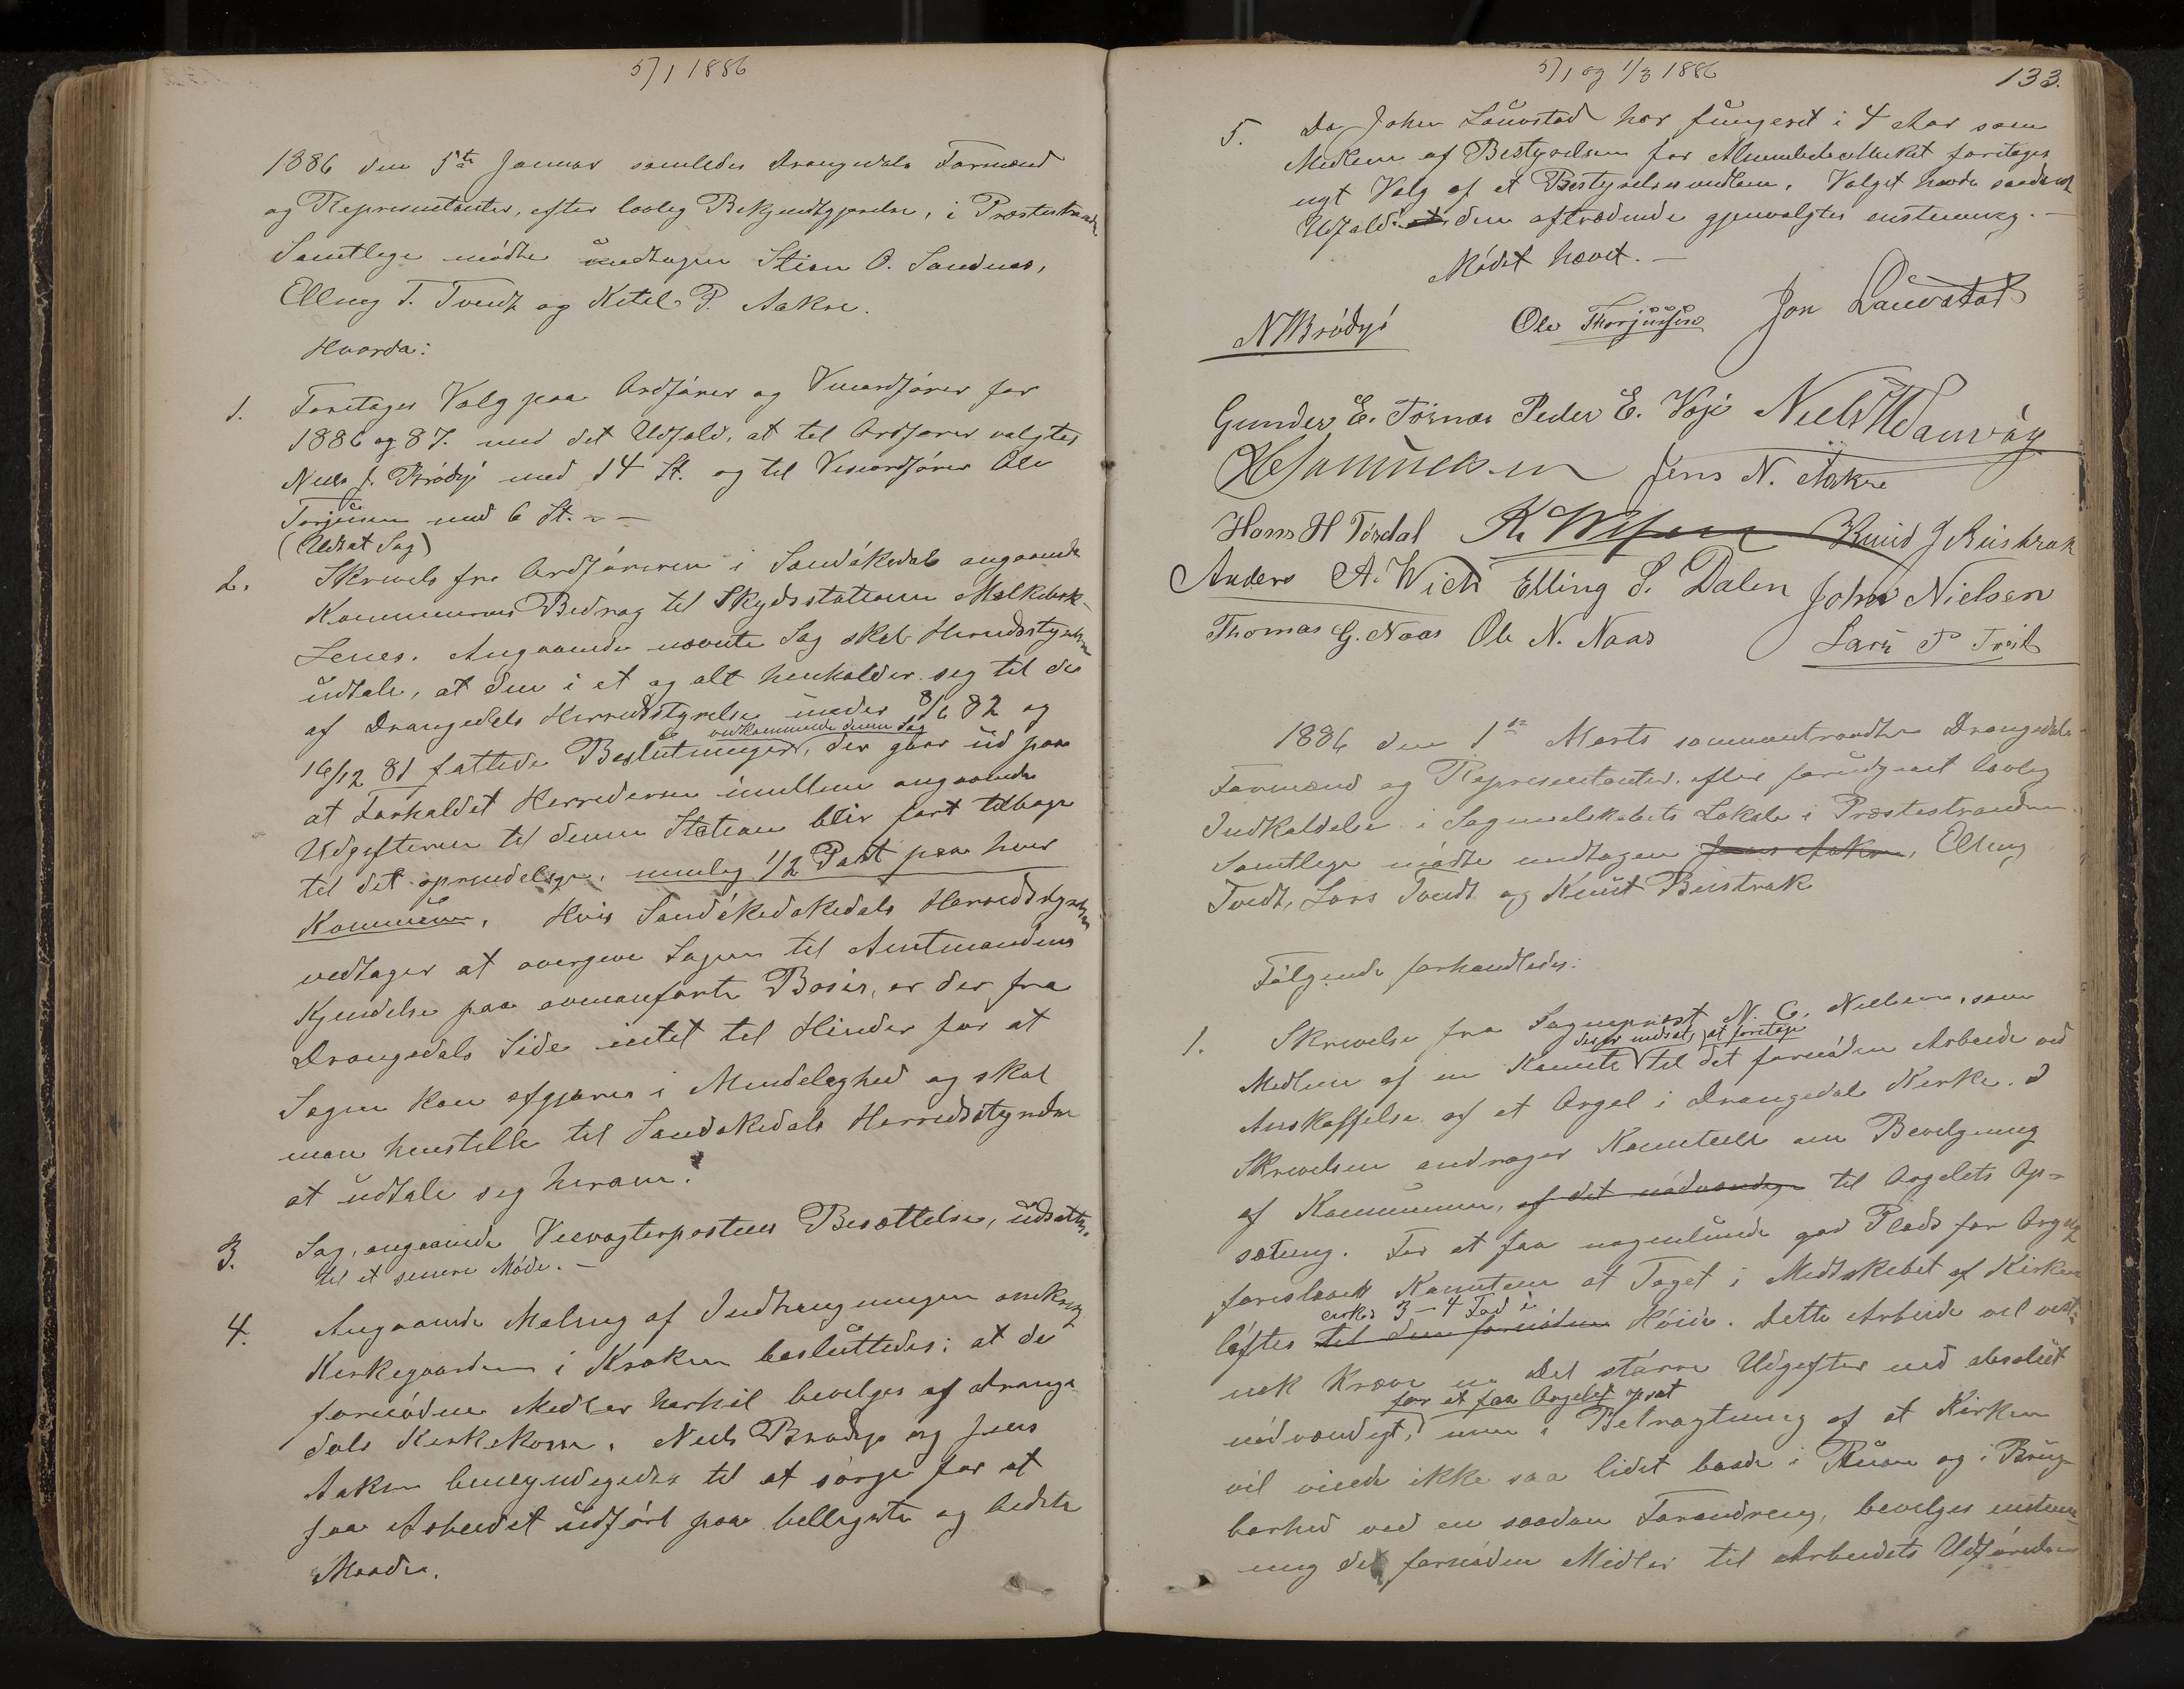 5/1 1886
1886 den 5te Januar samledes Drangedals Formænd
og Repræsentanter, efter lovlig Bekjendtgjørelse, i Præstestranden
Samtlige mödte undtagen Stian O. Sandnes,
Elling T. Tvedt og Ketel P. Aakre.
Hvorda:
1. Foretages Valg paa Ordförer og Viceordförer for
1886 og 87. med det Udfald, at til Ordförer valgtes
Niels J. Brödsjö med 14 St. og til Viceordförer Ole
Torjusen med 6 St. —
(Udsat Sag)
2. Skrivelse fra Ordföreren i Sandökedal angaaende
Kommunens Bidrag til Skydsstationen
Angaaende nævnte Sag skal Herredsstyrelsen
udtale, at den i et og alt henholder sig til de
af Drangedals Herredsstyrelse under 8/6 82 og
vedkommende denne Sag
16/12 81 fattede Beslutninger, der gaar ud paa
at Forholdet Herrederne imellem angaaende
Udgifterne til denne Station blir fört tilbage
til det oprindelige, nemlig 1/2 Part paa hver
Kommune. Hvis Sandökedakedals Herredsstyrelse
vedtager at overgive Sagen til Amtmandens
Kjendelse paa ovenanförte Basis, er der fra
Drangedals Side intet til Hinder for at
Sagen kan afgjöres i Mindelighed og skal
man henstille til Sandökedals Herredsstyrelse
at udtale sig herom.
3. Sag, angaaende Veivogterpostens Besættelse, udsættes
til et senere Möde. —
4. Angaaende Maling af Indhegningen omkring
Kirkegaarden i Kroken besluttedes: at de
fornödne Midler hertil bevilges af Drange-
dals Kirkekasse. Niels Brödsjö og Jens
Aakre bemyndigedes til at sörge for at
faa Arbeidet udfört paa billigste og bedste
Maade.
5/1 og 1/3 1886
133.
5. Da John Lauvstad har fungeret i 4 Aar som
Medlem af Bestyrelsen for foretages
nyt Valg af et Bestyrelsesmedlem. Valget havde saadant
Udfald: at den aftrædende gjenvalgtes enstemmig. —
Mödet hævet. —
N Brödsjö Ole Thorjussen Jon Lauvstad
Gunder E. Törnes Peder E. Voje Niels
Jens N. Aakre
Hans H Tördal Knud J Bustrak
Anders A. Wich Elling S. Dalen John Nielsen
Thomas G. Naas Ole N. Naas Lars T Tvedt
1886 den 1ste Marts sammentraadte Drangedals
Formænd og Repræsentanter efter forudgaaet lovlig
Indkaldelse i Sogneselskabets Lokale i Præstestranden.
Samtlige mödte undtagen Jens Aakre, Elling
Tvedt, Lars Tvedt og Knut Bustrak
Fölgende forhandledes:
1. Skrivelse fra Sogneprest N. C. Nielsen, som
der er nedsat, at foretage
Medlem af en Komite til det fornödne Arbeide ved
Anskaffelse af et Orgel i Drangedals Kirke. I
Skrivelsen andrager Komiteen om Bevilgning
af Kommunen, af det nödvendige til Orgelets Op-
sætning. For at faa nogenlunde god Plads for Orgelet
foreslaar Komiteen at Taget i Midtskibet af Kirken
cirka 3-4 Fod i
löftes til den fornödne Höide. Dette Arbeide vil vist-
nok kræve en Del större Udgifter med absolut
for at faa Orgelet opsat
nödvendigt, men i Betragtning af at Kirken
vil vinde ikke saa lidet baade i Rum og i Brug-
barhed ved en saadan Forandring, bevilges enstem-
mig de fornödne Midler til Arbeidets Udförelse